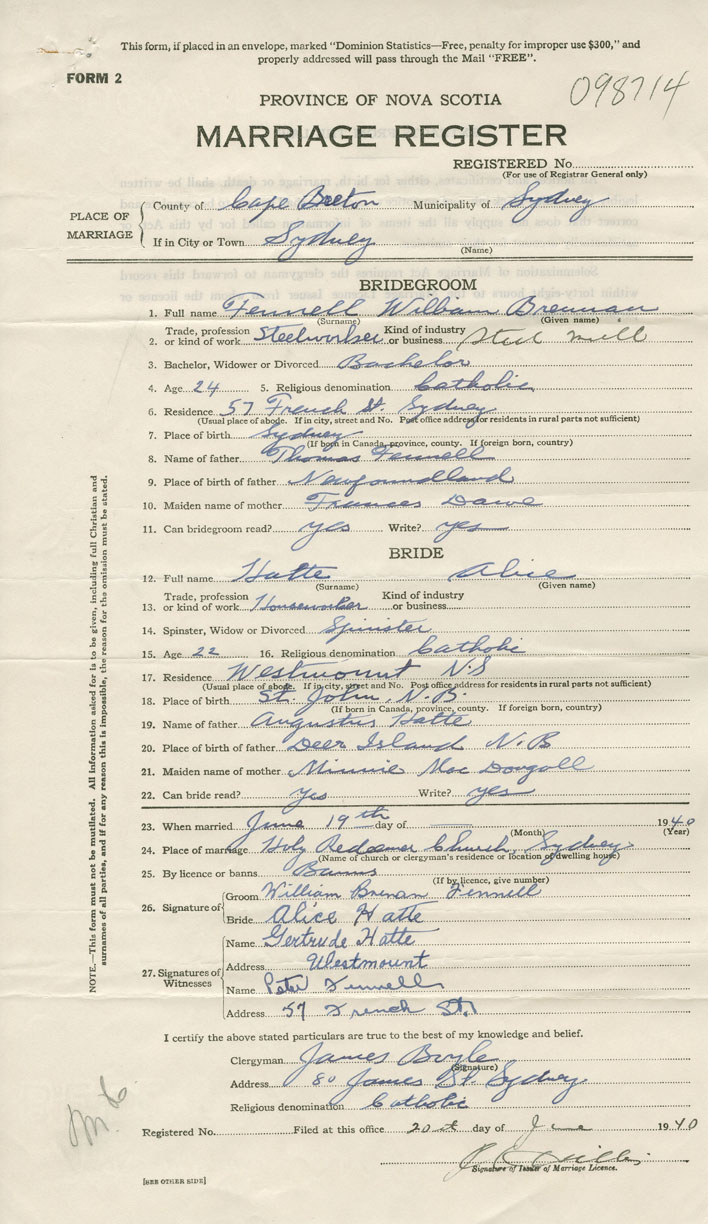 This form, if placed in an envelope, marked "Dominion Statistics—Free, penalty for improper use $300," and
properly addressed will pass through the Mail "FREE".
FORM 2
098714
PROVINCE OF NOVA SCOTIA
MARRIAGE REGISTER
REGISTERED No.
(For use of Registrar General only)
PLACE OF MARRIAGE
County of Cape Breton Municipality of Sydney
If in City or Town Sydney
(Name)
BRIDEGROOM
1. Full name Fennell William Brennan
(Surname) (Given name)
2. Trade, profession or kind of work Steelworker Kind of industry or business Steel mill
3. Bachelor, Widower or Divorced Bachelor
4. Age 24 5. Religious denomination Catholic
6. Residence 57 French St. Sydney
(Usual place of abode. If in city, street and No. Post office address for residents in rural parts not sufficient)
7. Place of birth Sydney
(If born in Canada, province, county. If foreign born, country)
8. Name of father Thomas Fennell
9. Place of birth of father Newfoundland
10. Maiden name of mother Frances Dawe
11. Can bridegroom read? yes Write? yes
BRIDE
12. Full name Hatte Alice
(Surname) (Given name)
13. Trade, profession or kind of work Houseworker Kind of industry or business
14. Spinster, Widow or Divorced Spinster
15. Age 22 16. Religious denomination Catholic
17. Residence Westmount N.S
(Usual place of abode. If in city, street and No. Post office address for residents in rural parts not sufficient)
18. Place of birth St. John, N.B.
(If born in Canada, province, county. If foreign born, country)
19. Name of father Augustus Hatte
20. Place of birth of father Deer Island N.B
21. Maiden name of mother Minnie Mac Dougall
22. Can bride read? yes Write? yes
23. When married June 19th day of 1940
(Month) (Year)
24. Place of marriage Holy Redeemer Church, Sydney
(Name of church or clergyman's residence or location of dwelling house)
25. By licence or banns Banns
(If by licence, give number)
26. Signature of
Groom William Brenan Fennell
Bride Alice Hatte
27. Signatures of Witnesses
Name Gertrude Hatte
Address Westmount
Name Peter Fennell
Address 57 French St.
I certify the above stated particulars are true to the best of my knowledge and belief.
Clergyman James Boyle
(Signature)
Address 80 James St. Sydney
Religious denomination Catholic
Registered No. Filed at this office 20th day of June 1940
Signature of Issuer of Marriage Licence.
[SEE OTHER SIDE]
NOTE.—This form must not be mutilated. All information asked for is to be given, including full Christian and
surnames of all parties, and if for any reason this is impossible, the reason for the omission must be stated.